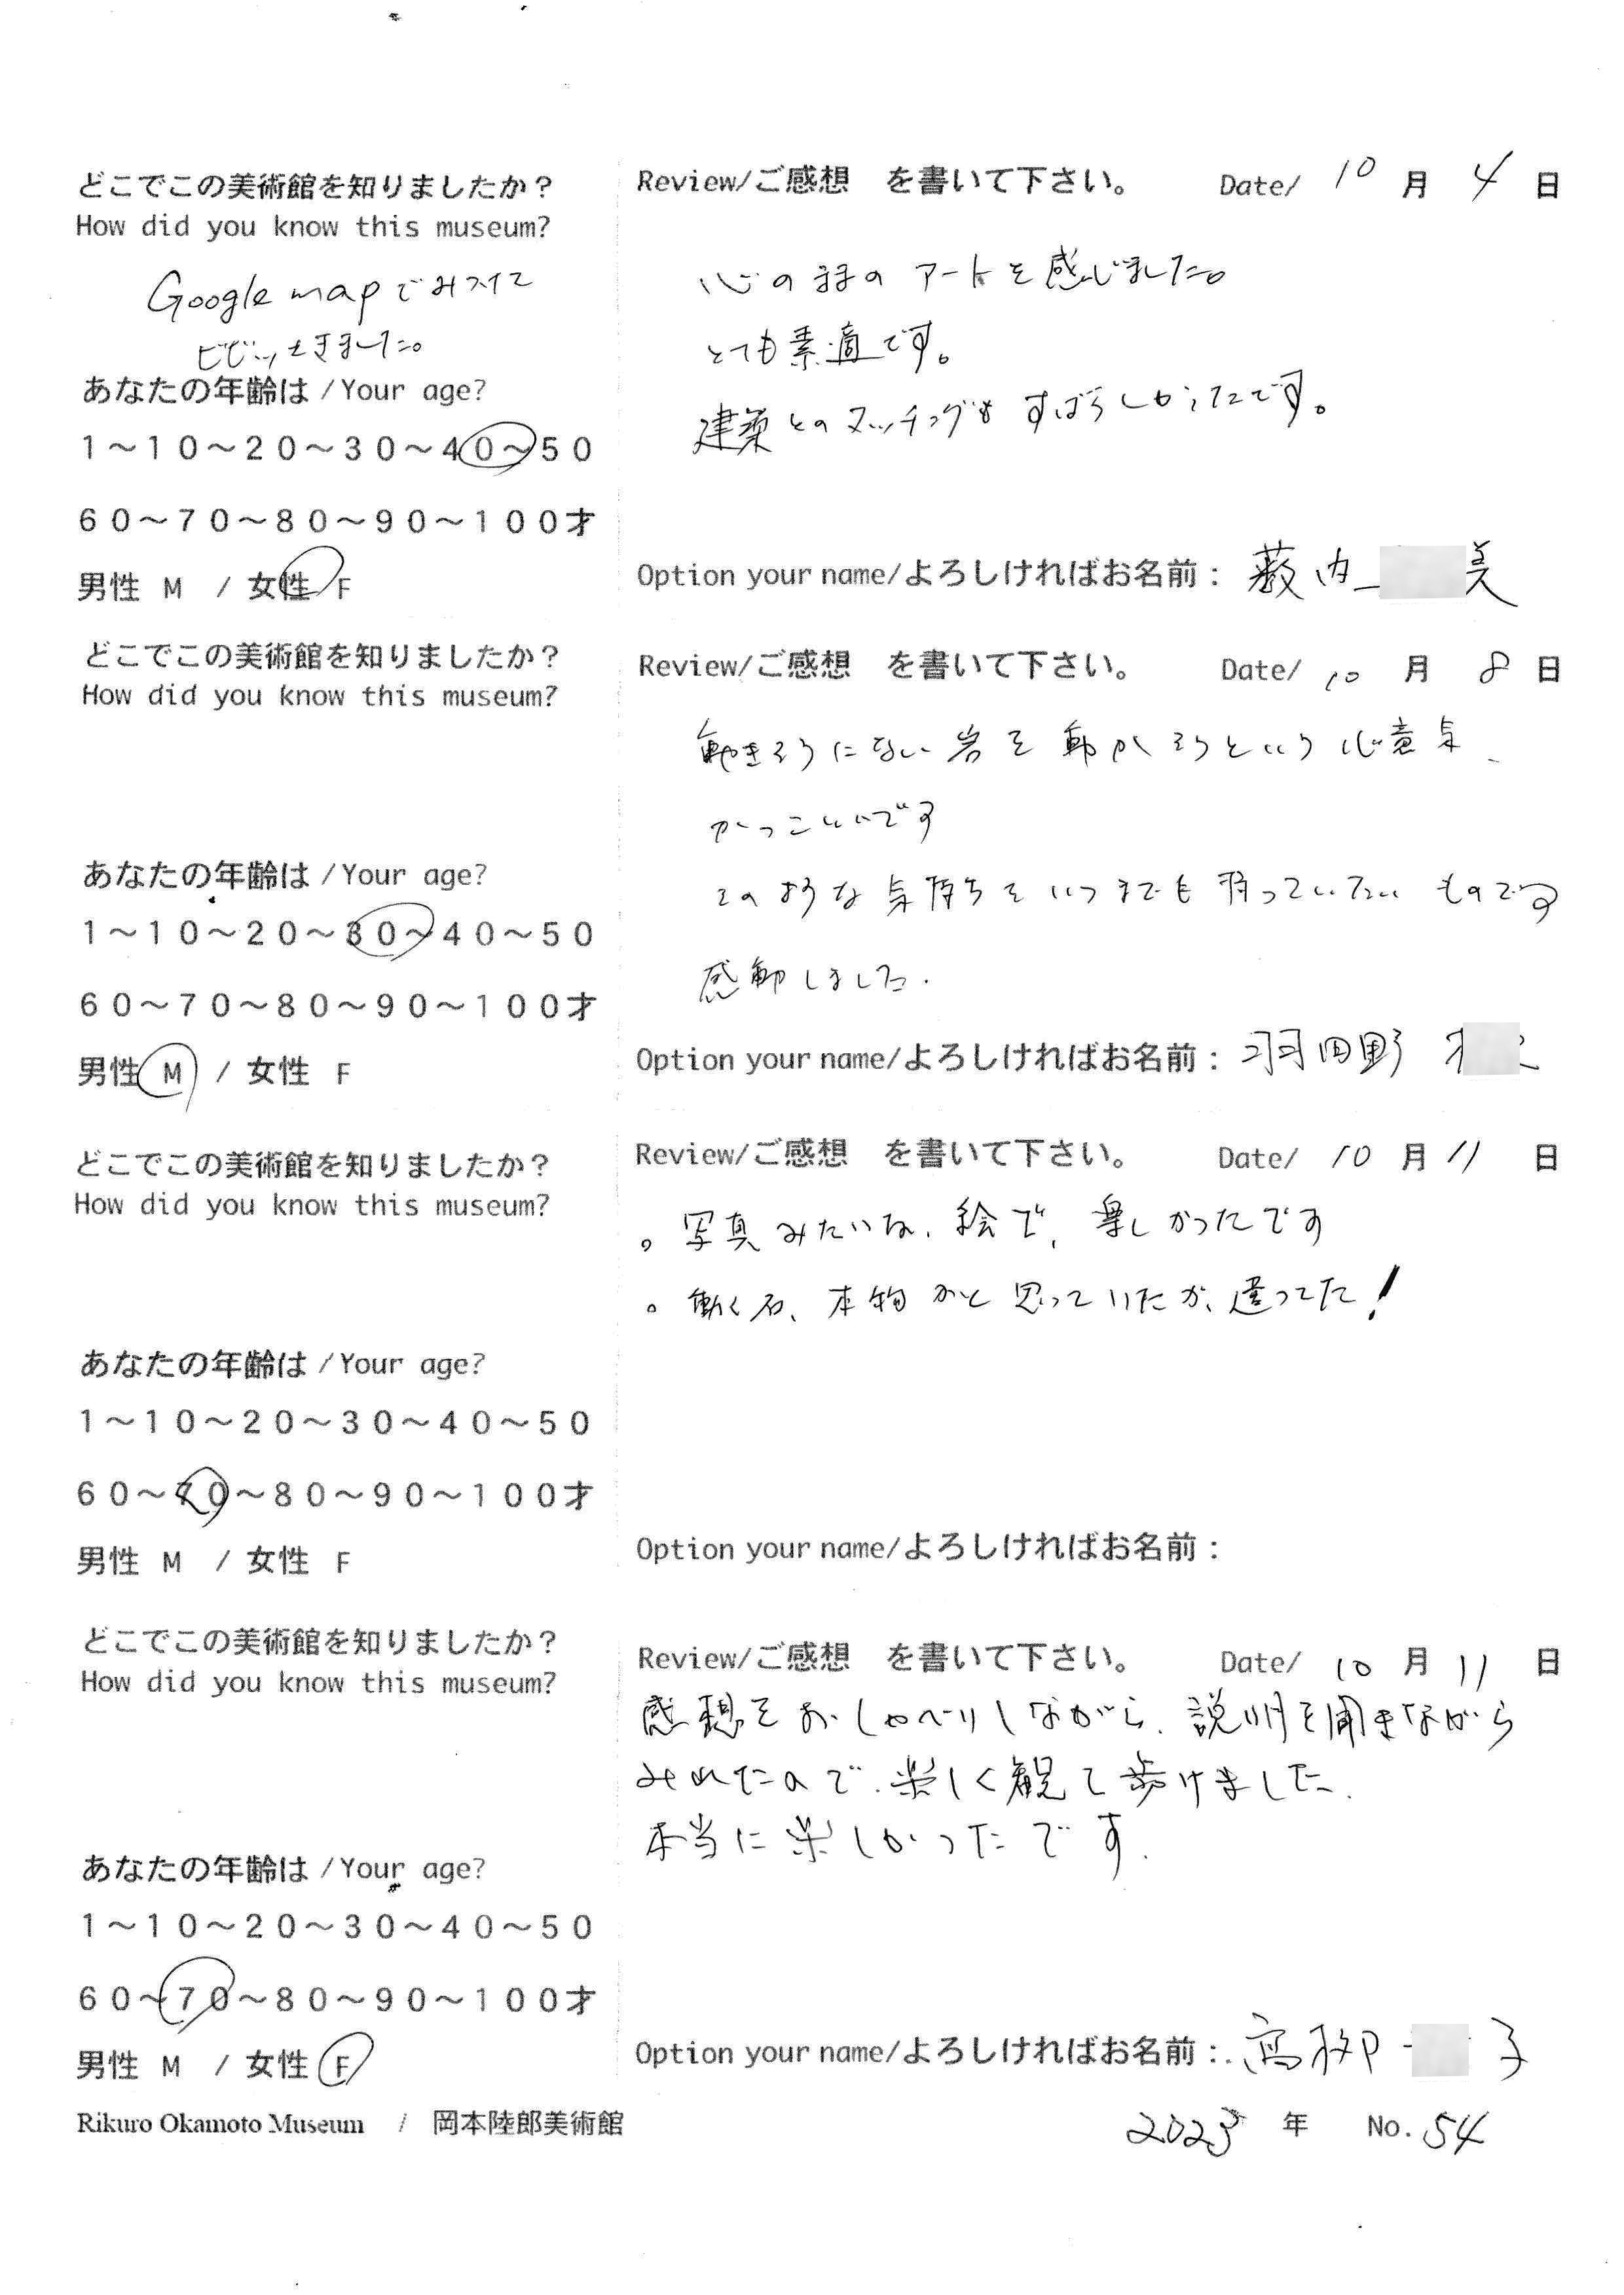 どこでこの美術館を知りましたか？
How did you know this museum?
Google mapでみつけて
ビビッときました。
あなたの年齢は /Your age?
1～10～20～30～40～50
60～70～80～90～100才
男性 M / 女性 F
Review/ご感想 を書いて下さい。 Date/ 10 月 4 日
心のままのアートを感じました。
とても素適です。
建築とのマッチングもすばらしかったです。
Option your name/よろしければお名前： 薮内 美
どこでこの美術館を知りましたか？
How did you know this museum?
あなたの年齢は /Your age?
1～10～20～30～40～50
60～70～80～90～100才
男性 M / 女性 F
Review/ご感想 を書いて下さい。 Date/ 10 月 8 日
動きそうにない岩を動かそうという心意気、
かっこいいです
そのような気持ちをいつまでも持っていたいものです
感動しました.
Option your name/よろしければお名前： 羽田野
どこでこの美術館を知りましたか？
How did you know this museum?
あなたの年齢は /Your age?
1～10～20～30～40～50
60～70～80～90～100才
男性 M / 女性 F
Review/ご感想 を書いて下さい。 Date/ 10 月 11 日
。写真みたいな、絵で、楽しかったです
。動く石、本物かと思っていたが、違ってた！
Option your name/よろしければお名前：
どこでこの美術館を知りましたか？
How did you know this museum?
あなたの年齢は /Your age?
1～10～20～30～40～50
60～70～80～90～100才
男性 M / 女性 F
Review/ご感想 を書いて下さい。 Date/ 10 月 11 日
感想をおしゃべりしながら、説明を聞きながら
みれたので、楽しく観て歩けました.
本当に楽しかったです.
Option your name/よろしければお名前： 高柳 子
Rikuro Okamoto Museum / 岡本陸郎美術館 2023 年 No. 54